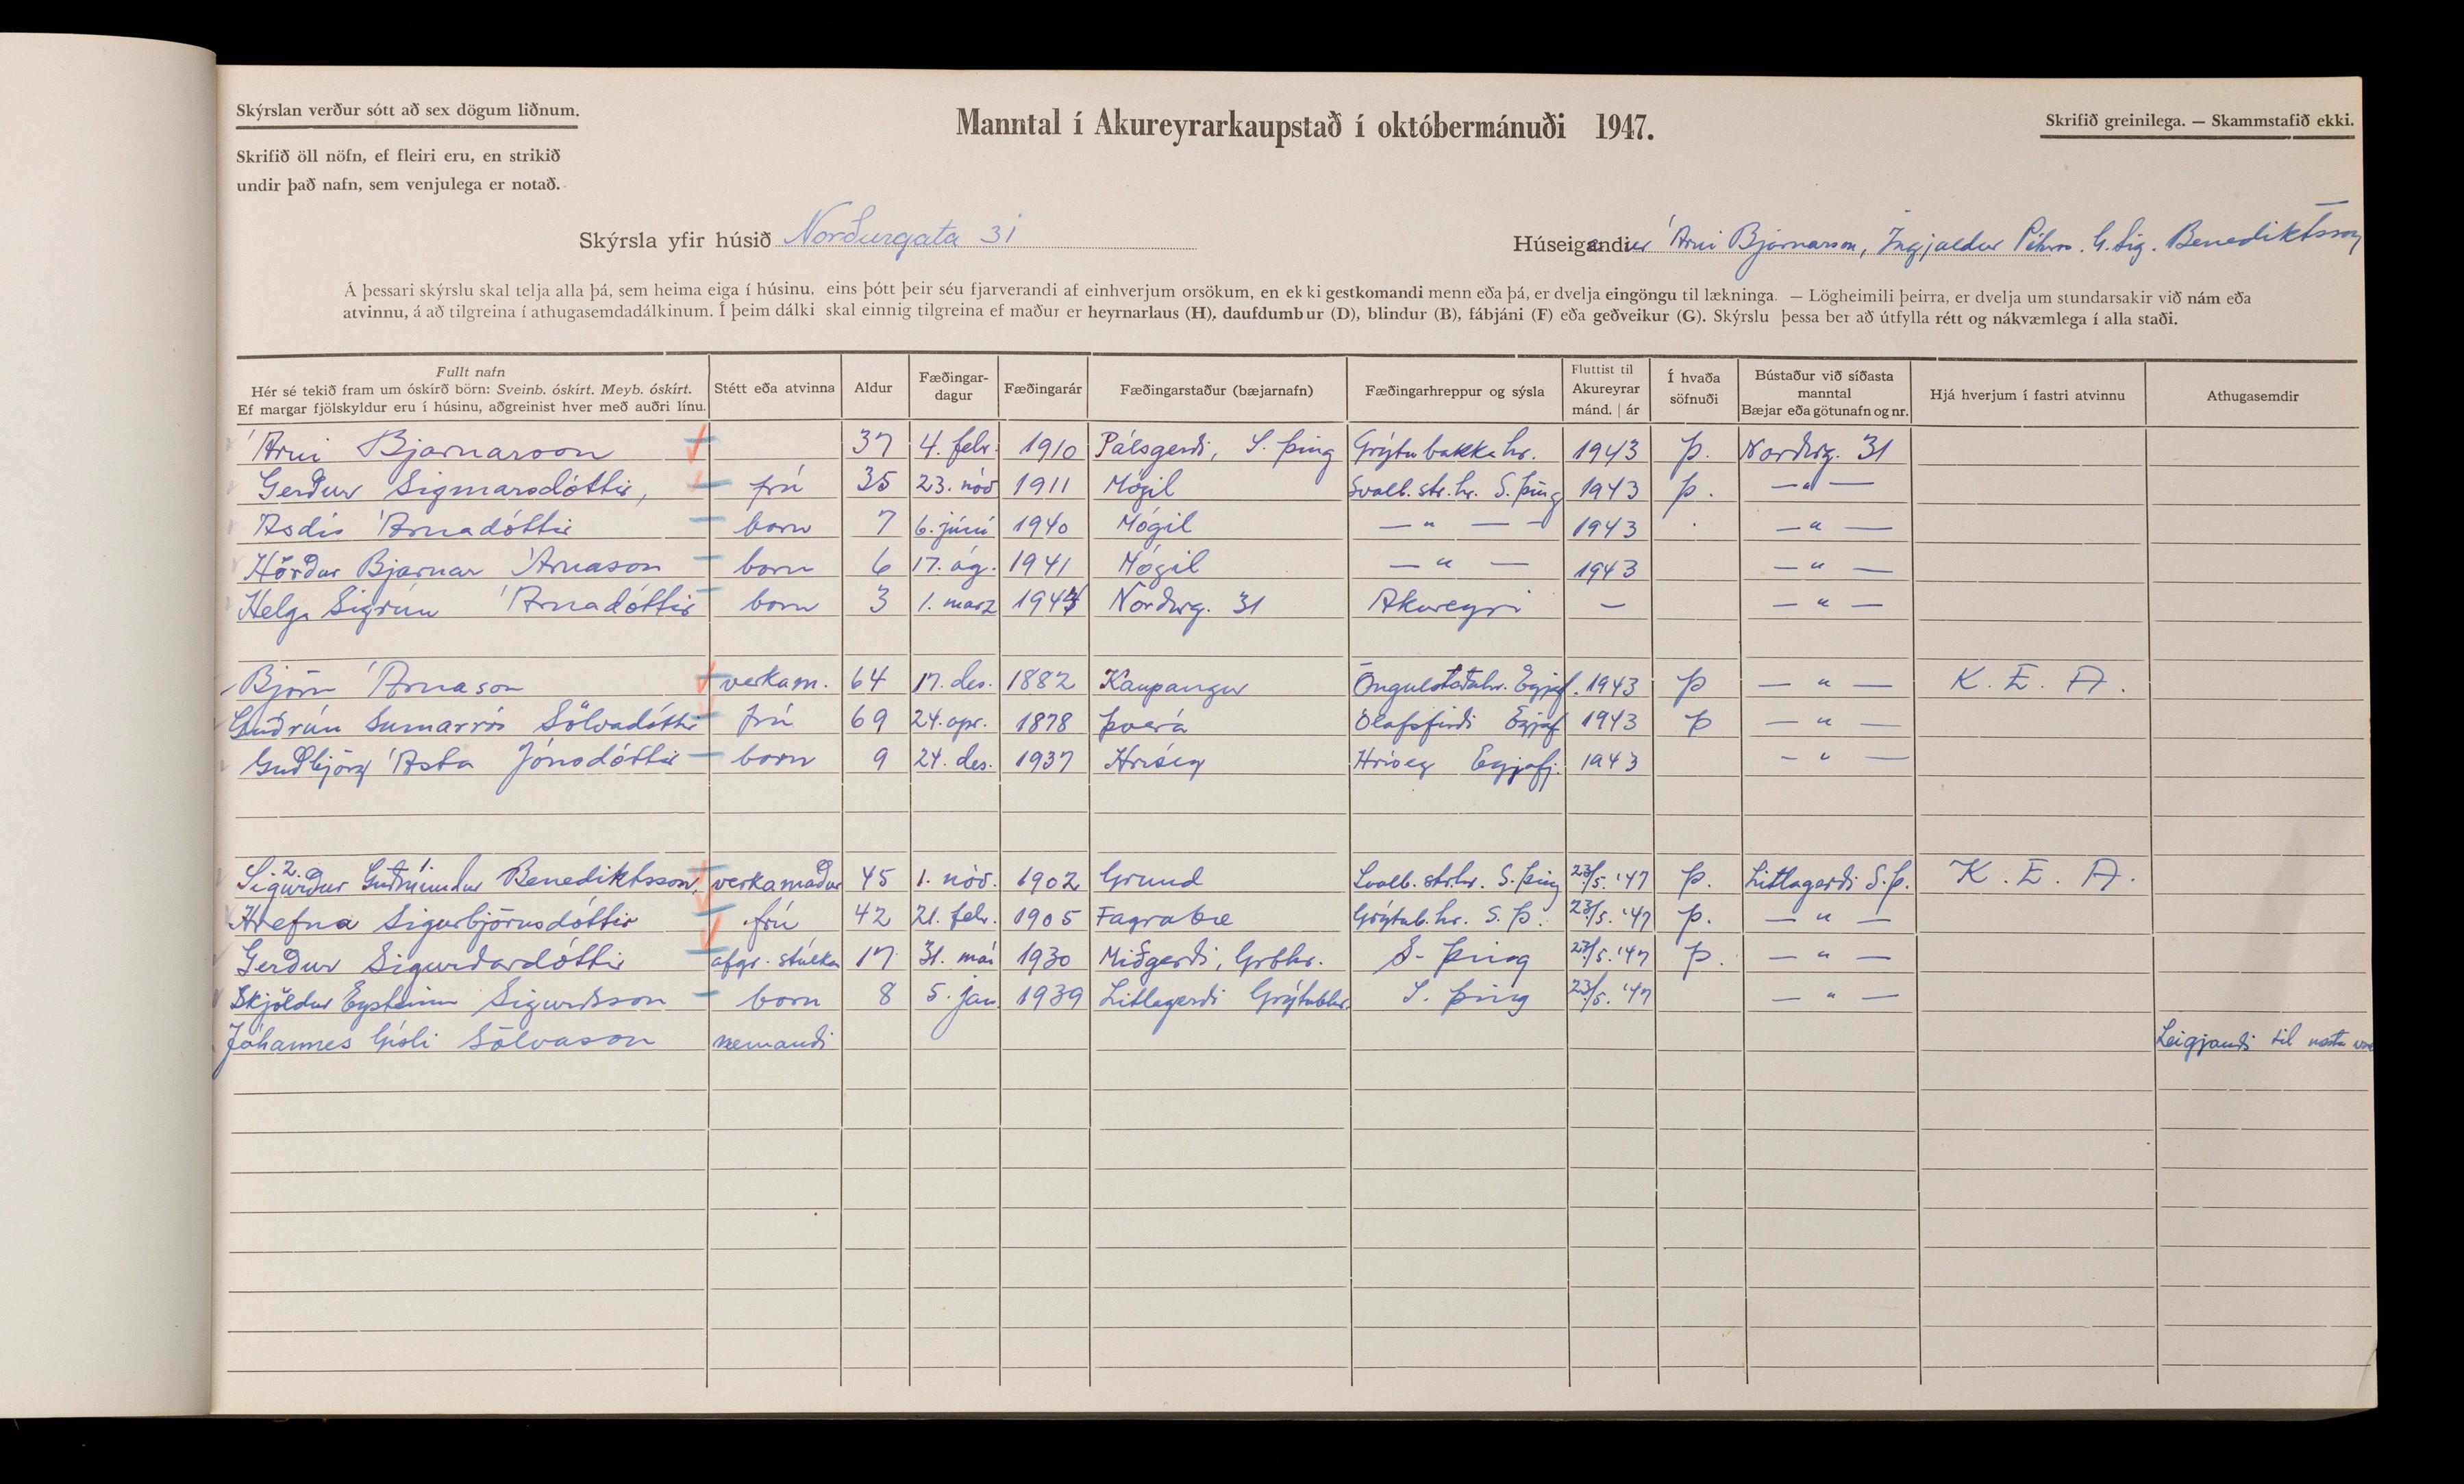 Skýrslan verður sótt að sex dögum liðnum.
Manntal í Akureyrarkaupstað í októbermánuði 1947.
Skrifið greinilega. — Skammstafið ekki.
Skrifið öll nöfn, ef fleiri eru, en strikið
undir það nafn, sem venjulega er notað.
Skýrsla yfir húsið Norðurgata 31
Húseigandi Árni Bjarnarson, Ingjaldur G. Sig. Benediktsson
Á þessari skýrslu skal telja alla þá, sem heima eiga í húsinu, eins þótt þeir séu fjarverandi af einhverjum orsökum, en ekki gestkomandi menn eða þá, er dvelja eingöngu til lækninga. — Lögheimili þeirra, er dvelja um stundarsakir við nám eða
atvinnu, á að tilgreina í athugasemdadálkinum. Í þeim dálki skal einnig tilgreina ef maður er heyrnarlaus (H), daufdumbur (D), blindur (B), fábjáni (F) eða geðveikur (G). Skýrslu þessa ber að útfylla rétt og nákvæmlega í alla staði.
Fullt nafn
Hér sé tekið fram um óskírð börn: Sveinb. óskírt. Meyb. óskírt.
Ef margar fjölskyldur eru í húsinu, aðgreinist hver með auðri línu.
Stétt eða atvinna
Aldur
Fæðingar-
dagur
Fæðingarár
Fæðingarstaður (bæjarnafn)
Fæðingarhreppur og sýsla
Fluttist til
Akureyrar
mánd. | ár
Í hvaða
söfnuði
Bústaður við síðasta
manntal
Bæjar eða götunafn og nr.
Hjá hverjum í fastri atvinnu
Athugasemdir
Árni Bjarnarson 37 4. febr. 1910 Pálsgerði, S. Þing Grýtubakkahr. 1943 Þ. Norðurg. 31
Gerður Sigmarsdóttir, frú 35 23. nóv 1911 Mógil Svalb.str.hr. S. Þing 1943 Þ. — " —
Ásdís Árnadóttir born 7 6. júní 1940 Mógil — " — — 1943 — " —
Hörður Bjarnar Árnason born 6 17. ág. 1941 Mógil — " — 1943 — " —
Helga Sigrún Árnadóttir born 3 1. marz 1944 Norðurg. 31 Akureyri — — " —
Björn Árnason verkam. 64 17. des. 1882 Kaupangur Öngulstaðahr. Eyjaf. 1943 Þ — " — K. E. A.
Guðrún Sumarrós Sölvadóttir frú 69 24. apr. 1878 Þverá Ólafsfirði Eyjaf 1943 Þ — " —
Guðbjörg Ásta Jónsdóttir born 9 24. des. 1937 Hrísey Hrísey Eyjafj. 1943 — " —
2. 1.
Sigurður Guðmundur Benediktsson, verkamaður 45 1. nóv. 1902 Grund Svalb. str.hr. S. Þing 23/5. '47 Þ. Litlagerði S.Þ. K. E. A.
Hrefna Sigurbjörnsdóttir frú 42 21. febr. 1905 Fagrabæ Grýtub.hr. S. Þ. 23/5. '47 Þ. — " —
Gerður Sigurðardóttir afgr. stúlka 17 31. maí 1930 Miðgerði, Grbhr. S- Þing 23/5. '47 Þ. — " —
Skjöldur Eysteinn Sigurðsson born 8 5. jan. 1939 Litlagerði Grýtubhr. S. Þing 23/5. '47 — " —
Jóhannes Gísli Sölvason nemandi Leigjandi til næsta